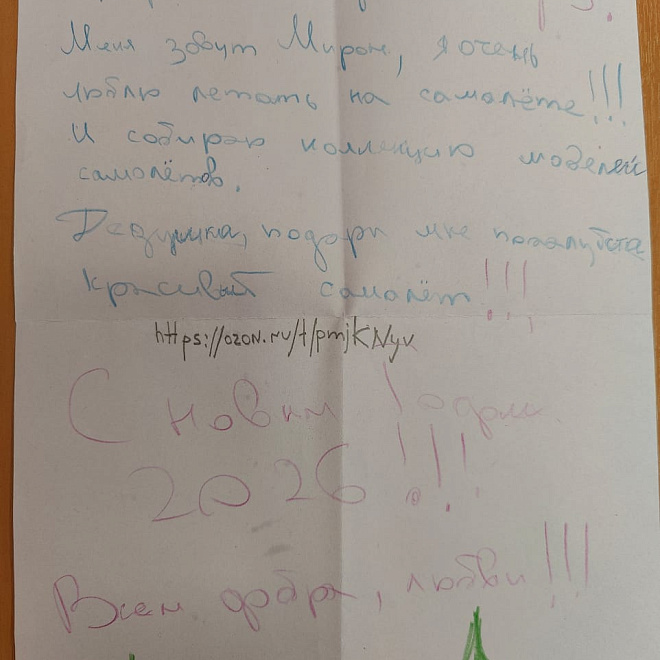 Меня зовут Мирон, я очень
люблю летать на самолёте!!!
И собираю коллекцию моделей
самолётов.
Дедушка, подари мне пожалуйста
красивый самолёт!!!
https://ozon.ru/t/pmjKNyv
С новым Годом
2026!!!
Всем добра, любви!!!